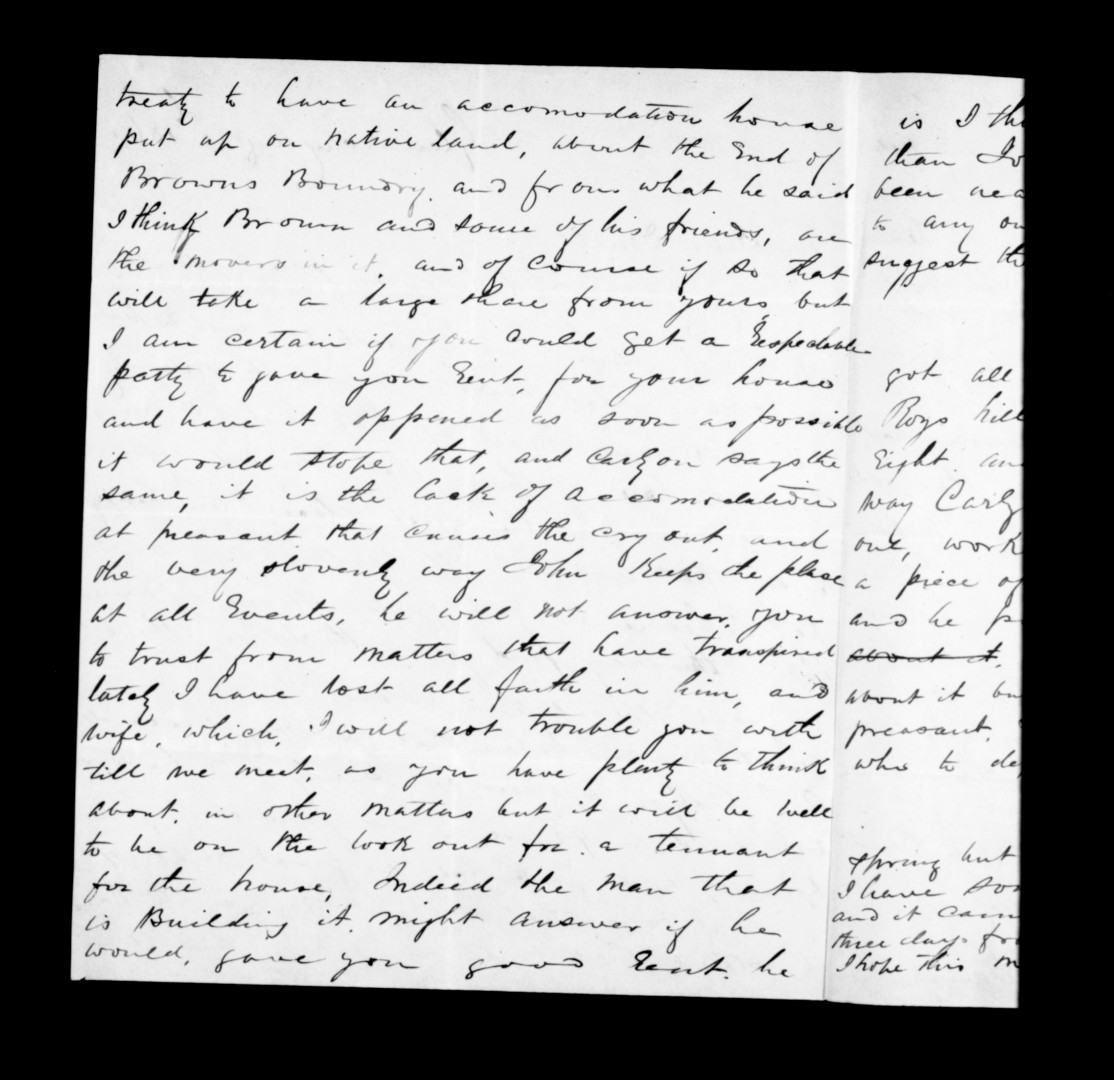 treaty to have an accomodation house
put up on native land, about the End of
Browns Boundry, and from what he said
I think Brown and some of his friends, are
the movers in it, and of course if so that
will take a large share from yours but
I am certain if you could get a Respectable
party to gave you Rent, for your house
and have it oppened as soon as possible
it would stope that, and Carlyon says the
same, it is the lack of accomodation
at preasant that causes the cry out, and
the very slovenly way John Keeps the place
at all Events, he will not answer, you
to trust from matters that have transpired
lately I have lost all faith in him, and
wife, which, I will not trouble you with
till we meet, as you have plenty to think
about, in other matters but it will be well
to be on the look out for a tennant
for the house, Indeed the man that
is Building it, might answer if he
would, gave you good Rent. he
is I
than
been
to any
suggest
got all
Roys hill
Eight
way
out, work
a piece of
and he
about it,
about it
preasant.
who to
spring but
I have
and it
three days
I hope this